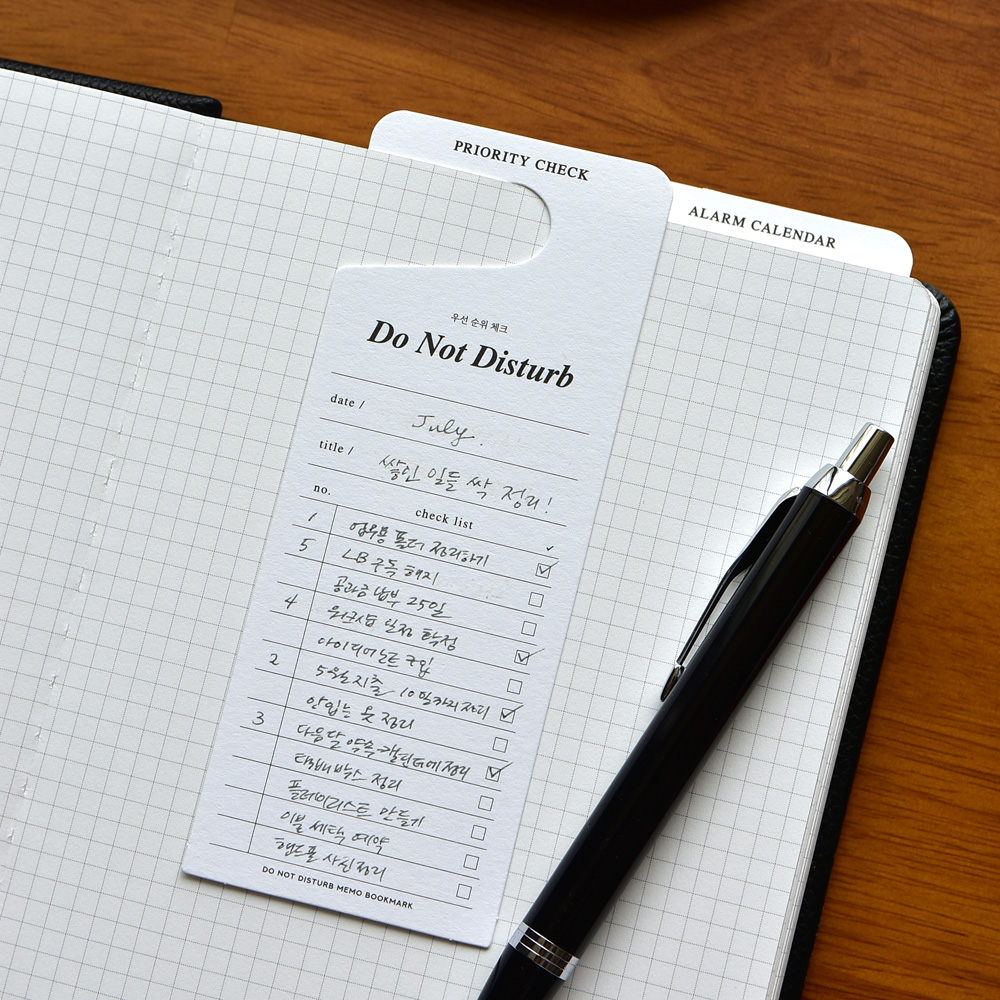 PRIORITY CHECK
ALARM CALENDAR
우선 순위 체크
Do Not Disturb
date / July.
title / 쌓인 일들 싹 정리!
no. check list ✓
1 업무용 폴더 정리하기 ☑
5 LB 구독 해지 ☐
공과금 납부 25일 ☐
4 워크샵 일정 확정 ☑
아이디어노트 구입 ☐
2 5월 지출 10일까지 정리 ☑
안입는 옷 정리 ☐
3 다음달 약속 캘린더에 정리 ☑
택배박스 정리 ☐
플레이리스트 만들기 ☐
이불 세탁 예약 ☐
핸드폰 사진정리 ☐
DO NOT DISTURB MEMO BOOKMARK